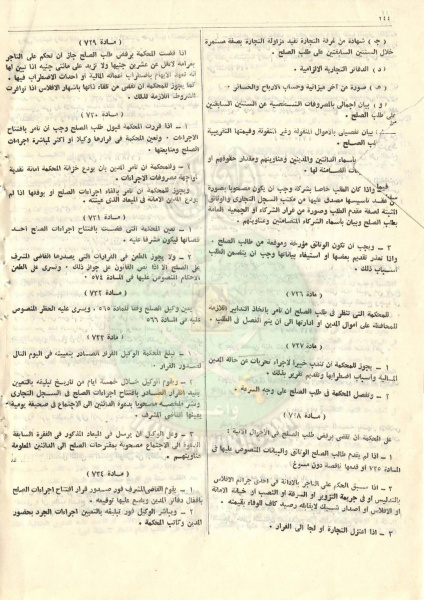 ٢٤٤
(ج) شهادة من غرفة التجارة تفيد مزاولة التجارة بصفة مستمرة
خلال السنتين السابقتين على طلب الصلح .
(د) الدفاتر التجارية الالزامية .
صورة من آخر ميزانية وحساب الأرباح والخسائر .
(و) بيان اجمالى بالمصروفات الشخصية عن السنتين السابقتين
على طلب الصلح .
بيان تفصيلى بالأموال المنقولة وغير المنقولة وقيمتها التقريبية
الصلح .
بأسماء الدائنين والمدينين وعناوينهم ومقدار حقوقهم أو
الضامنة لها .
واذا كان الطلب خاصا بشركة وجب أن يكون مصحوبا بصورة
عقد تأسيسها مصدق من مكتب السجل التجارى والوثائق
المثبتة لصفة مقدم الطلب وصورة من قرار الشركاء أو الجمعية العامة
بطلب الصلح وبيان بأسماء الشركاء المتضامنين وعناوينهم .
٣ - ويجب أن تكون الوثائق مؤرخة وموقعة من طالب الصلح .
واذا تعذر تقديم بعضها أو استيفاء بياناتها وجب أن يتضمن الطلب
أسباب ذلك .
مادة (٧٢٦)
للمحكمة التى تنظر فى طلب الصلح أن تأمر باتخاذ التدابير اللازمة
للمحافظة على أموال المدين أو ادارتها الى أن يتم الفصل فى الطلب .
مادة (٧٢٧)
١ - يجوز للمحكمة أن تندب خبيرا لاجراء تحريات عن حالة المدين
المالية وأسباب اضطرابها وتقديم تقرير بذلك .
٢ - وتفصل المحكمة فى طلب الصلح على وجه السرعة .
مادة (٧٢٨)
على المحكمة أن تقضى برفض طلب الصلح فى الأحوال الآتية :
١ - اذا لم يقدم طالب الصلح الوثائق والبيانات المنصوص عليها فى
المادة ٧٢٥ أو قدمها ناقصة دون مسوغ .
٢ - اذا سبق الحكم على التاجر بالادانة فى احدى جرائم الافلاس
بالتدليس أو فى جريمة التزوير أو السرقة أو النصب أو خيانة الأمانة
أو الاختلاس أو اصدار شيك لايقابله رصيد كاف للوفاء بقيمته .
٣ - اذا اعتزل التجارة أو لجأ الى الفرار .
مادة (٧٢٩)
اذا قضت المحكمة برفض طلب الصلح جاز أن تحكم على التاجر
بغرامة لاتقل عن عشرين جنيها ولا تزيد على مائتى جنيه اذا تبين لها
أنه تعمد الايهام باضطراب أعماله المالية أو احداث الاضطراب فيها .
كما يجوز للمحكمة أن تقضى من تلقاء ذاتها باشهار الافلاس اذا توافرت
الشروط اللازمة لذلك .
مادة (٧٣٠)
١ - اذا قررت المحكمة قبول طلب الصلح وجب أن تأمر بافتتاح
الاجراءات . وتعين المحكمة فى قرارها وكيلا أو أكثر لمباشرة اجراءات
الصلح ومتابعتها .
٢ - وللمحكمة أن تأمر المدين بأن يودع خزانة المحكمة أمانة نقدية
لمواجهة مصروفات الاجراءات .
ويجوز للمحكمة أن تأمر بالغاء اجراءات الصلح أو بوقفها اذا لم
تودع الأمانة فى الميعاد الذى عينته .
مادة (٧٣١)
١ - تعين المحكمة التى قضت بافتتاح اجراءات الصلح أحد
قضاتها ليكون مشرفا عليه .
٢ - ولا يجوز الطعن فى القرارات التى يصدرها القاضى المشرف
على الصلح الا اذا نص القانون على جواز ذلك . وتسرى على الطعن
الأحكام المنصوص عليها فى المادة ٥٧١ .
مادة (٧٣٢)
يعين وكيل الصلح وفقا للمادة ٥٦٥ ويسرى عليه الحظر المنصوص
عليه فى المادة ٥٦٦ .
مادة ٧٣٣
١ - تبلغ المحكمة الوكيل القرار الصادر بتعيينه فى اليوم التالى
لصدور القرار .
٢ - ويقوم الوكيل خلال خمسة أيام من تاريخ تبليغه بالتعيين
بقيد القرار الصادر بافتتاح اجراءات الصلح فى السجل التجارى
ونشر ملخصه مصحوبا بدعوة الدائنين الى الاجتماع فى صحيفة يومية
يعينها القاضى المشرف .
٣ - وعلى الوكيل أن يرسل فى الميعاد المذكور فى الفقرة السابقة
الدعوة الى الاجتماع مصحوبة بمقترحات الصلح الى الدائنين المعلومة
عناوينهم .
مادة (٧٣٤)
١ - يقوم القاضى المشرف فور صدور قرار افتتاح اجراءات الصلح
باقفال دفاتر المدين ويضع عليها توقيعه .
٢ - ويباشر الوكيل فور تبليغه بالتعيين اجراءات الجرد بحضور
المدين وكاتب المحكمة .